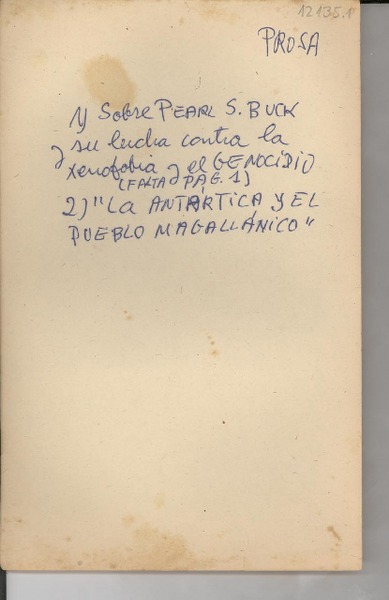 12135.1
PROSA
1) Sobre PEARL S. BUCK
y su lucha contra la
xenofobia y el GENOCIDIO
(FALTA PÁG. 1)
2) "LA ANTÁRTICA Y EL
PUEBLO MAGALLÁNICO"